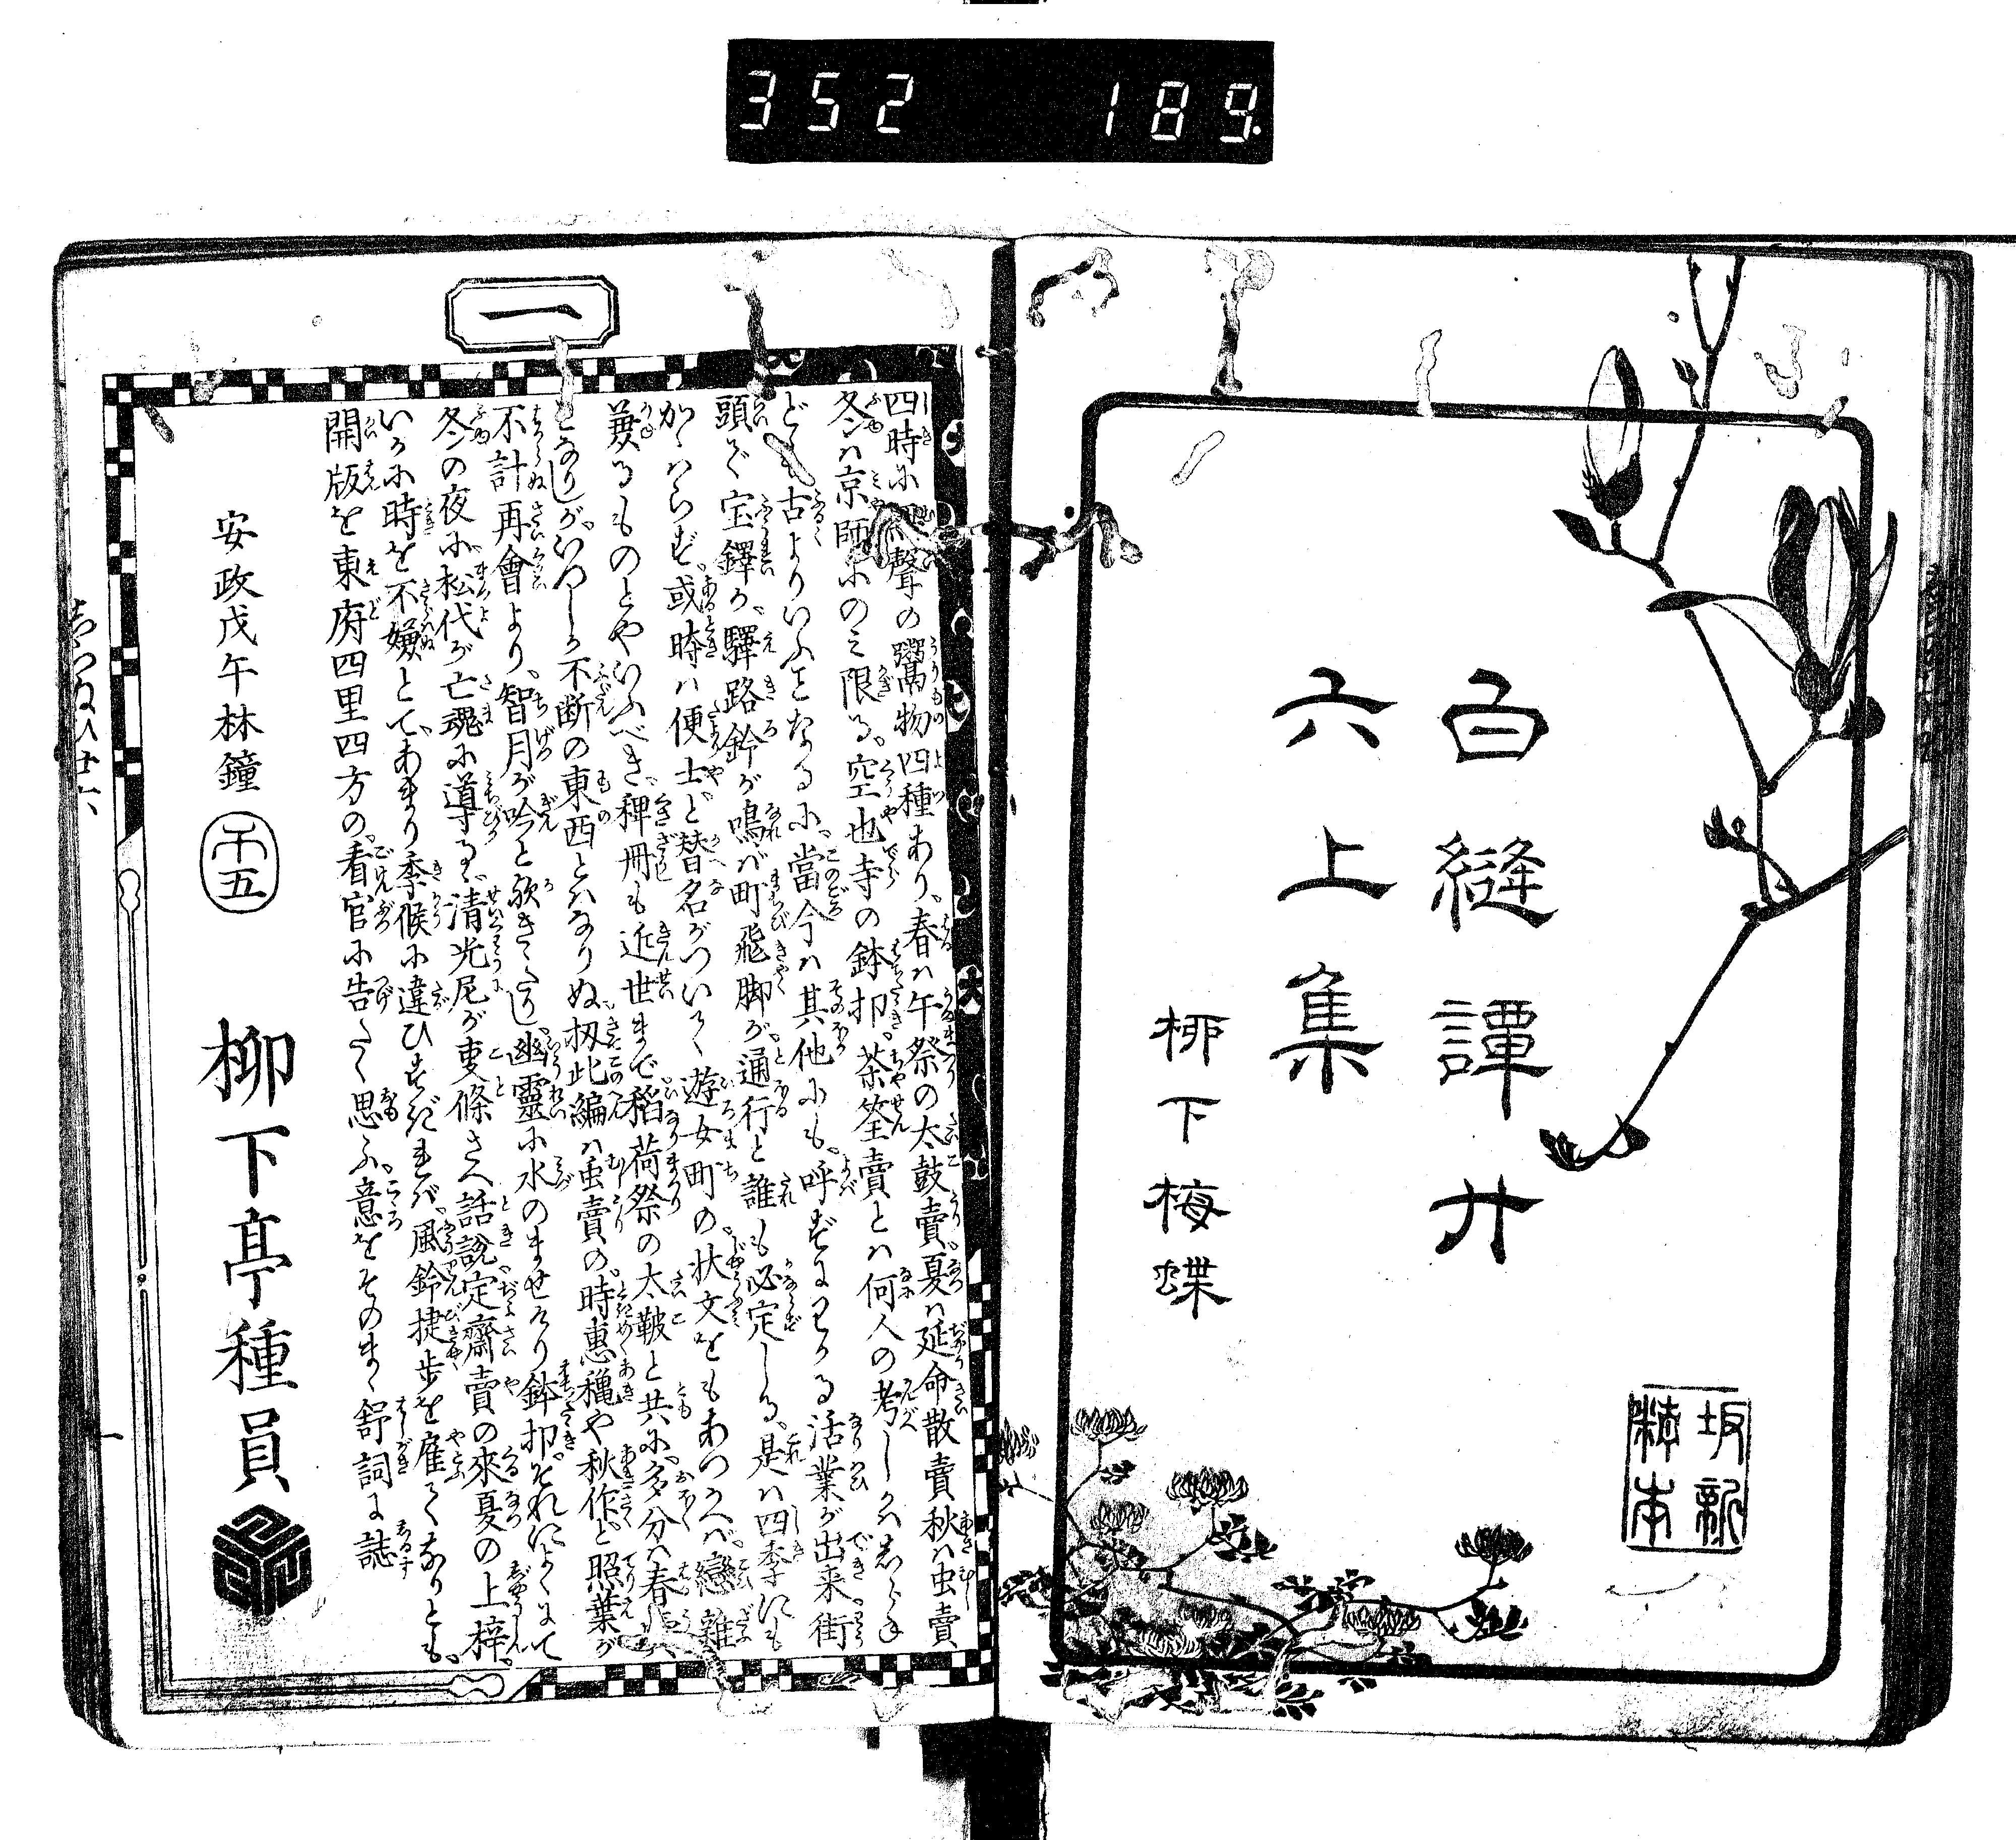 352 189
白縫譚廾
六上集
柳下梅蝶
一
四時に聲の鬻物四種あり、春ハ午祭の太鼓賣夏ハ延命散賣秋ハ虫賣
冬ハ京師にのミ限る。空也寺の鉢扣。茶筌賣とハ何人の考しかハしらね
ども古よりいふことなるに、當今ハ其他にも。呼ずにうる活業が出来街
頭で宝鐸か、驛路鈴が鳴バ町飛脚が通行と誰も必定しる。是ハ四季にも
かゝハらず、或時ハ便士ど替名がついて遊女町の状文をもあつかへバ。戀雜
兼るものとやいふべき、稗冊も近世まで稻荷祭の太皷と共に、多分ハ春
となりしが、いつしか不断の東西とハなりぬ扨此編ハ虫賣の。時惠龝や秋作と照葉が
不計再會より、智月が吟と歌きゝし。幽靈に水のませたり鉢扣。それによくにて
冬の夜に、松代が亡魂に導る。清光尼が支條さへ話説定齋賣の來夏の上梓。
いかに時を不嫌とて、あまり季候に違ひすぎれバ、風鈴捷歩を雇てなりとも。
開版を東府四里四方の。看官に告たく思ふ。意をそのまゝ舒詞に誌
安政戊午林鐘
柳下亭種員
しらぬひ廿六